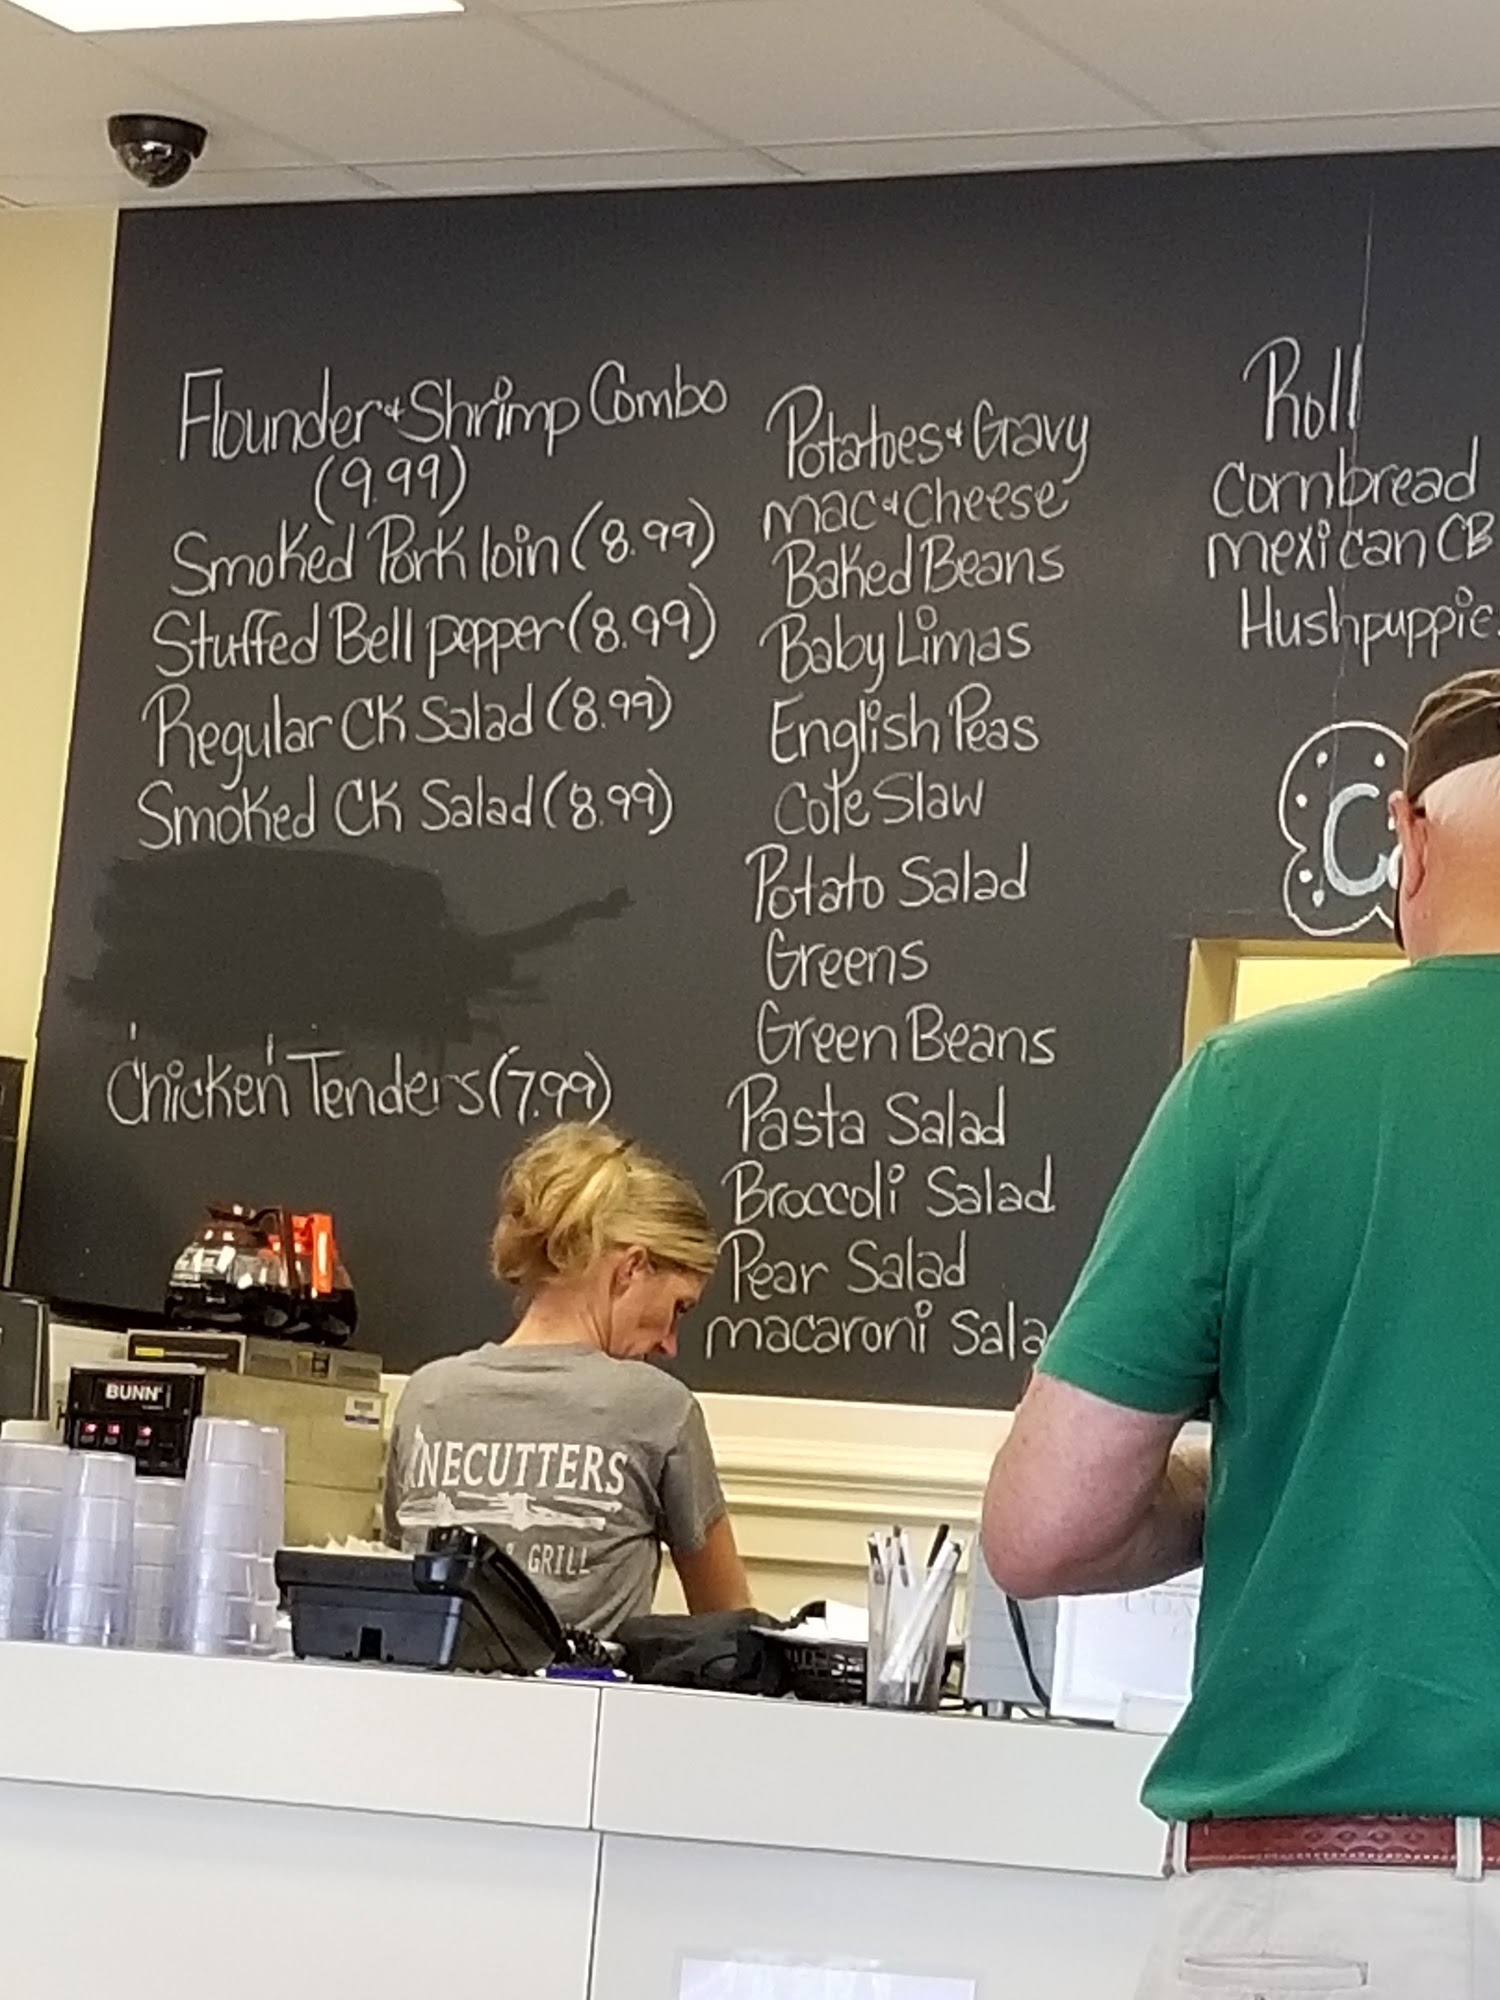 Flounder & Shrimp Combo
(9.99)
Smoked Pork loin (8.99)
Stuffed Bell pepper (8.99)
Regular CK Salad (8.99)
Smoked CK Salad (8.99)
Chicken Tenders (7.99)
Potatoes & Gravy
mac & cheese
Baked Beans
Baby Limas
English Peas
Cole Slaw
Potato Salad
Greens
Green Beans
Pasta Salad
Broccoli Salad
Pear Salad
macaroni Sala
Roll
Cornbread
mexican CB
Hushpuppie
BUNN
NECUTTERS
& GRILL